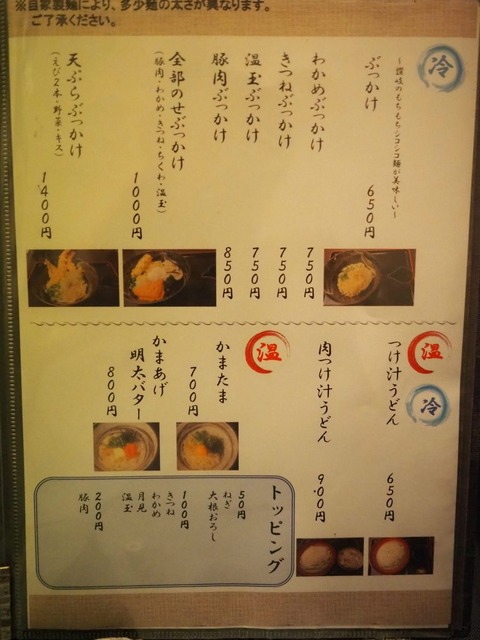 ※自家製麺により、多少麺の太さが異なります。
ご了承ください。
冷
～讃岐のもちもちシコシコ麺が美味しい～
ぶっかけ
650円
わかめぶっかけ
750円
きつねぶっかけ
750円
温玉ぶっかけ
750円
豚肉ぶっかけ
850円
全部のせぶっかけ
(豚肉・わかめ・きつね・ちくわ・温玉)
1000円
天ぷらぶっかけ
(えび2本・野菜・キス)
1400円
温
冷
つけ汁うどん
650円
肉つけ汁うどん
900円
温
かまたま
700円
かまあげ
明太バター
800円
トッピング
50円
ねぎ
大根おろし
100円
きつね
わかめ
月見
温玉
200円
豚肉